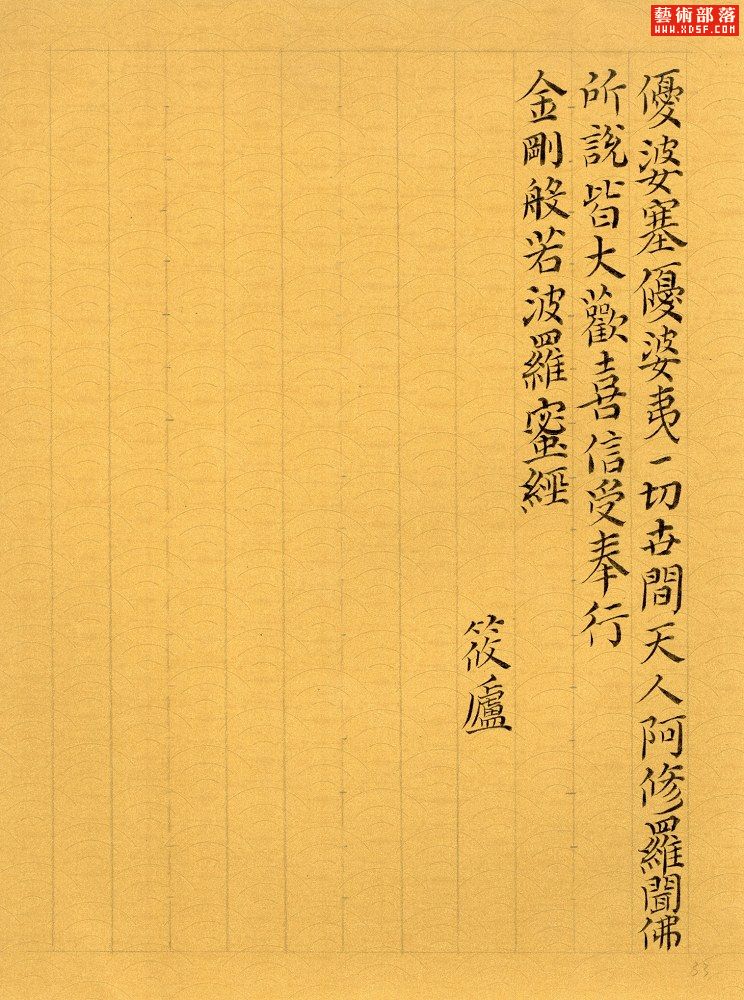 藝術部落
WWW.XDSF.COM
優婆塞優婆夷一切世間天人阿修羅聞佛
所說皆大歡喜信受奉行
金剛般若波羅蜜經
筱廬
53